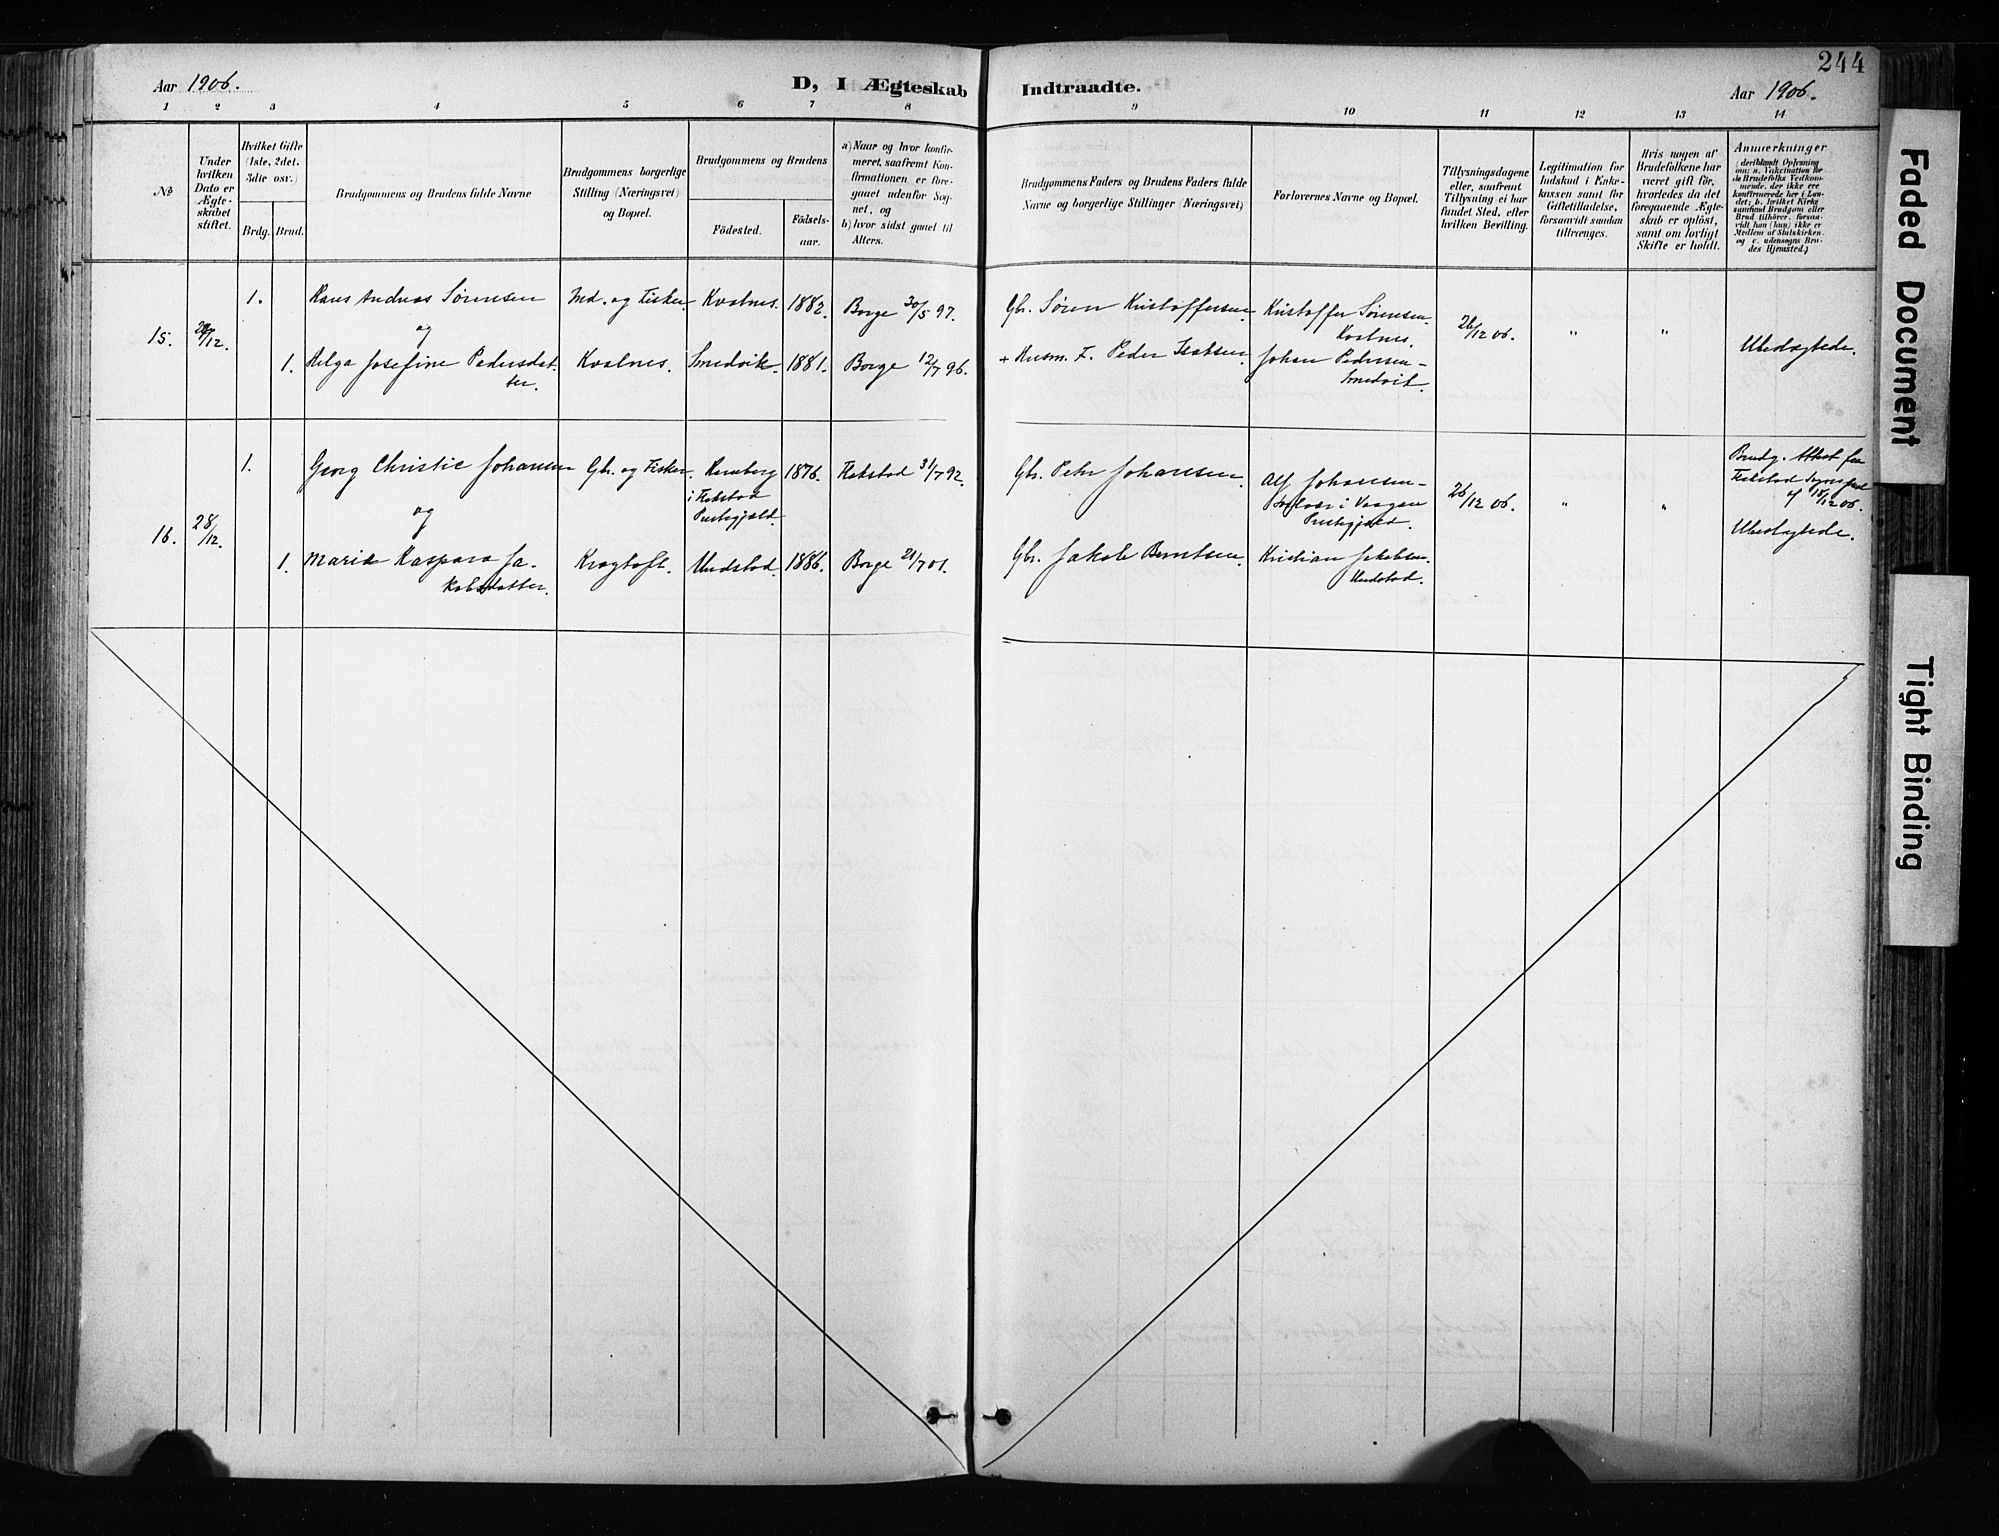 244
Aar 1906.
D, I Ægteskab Indtraadte.
Aar 1906.
1 2 3 4 5 6 7 8 9 10 11 12 13 14
No
Under hvilken Dato er Ægteskabet stiftet.
Hvilket Gifte (1ste, 2det, 3die osv.)
Brdg. Brud.
Brudgommens og Brudens fulde Navne
Brudgommens borgerlige Stilling (Næringsvei) og Bopæl.
Brudgommens og Brudens
Födested.
Födselsaar.
a) Naar og hvor konfirmeret, saafremt Konfirmationen er foregaaet udenfor Sognet, og
b) hvor sidst gaaet til Alters.
Brudgommens Faders og Brudens Faders fulde Navne og borgerlige Stillinger (Næringsvei)
Forlovernes Navne og Bopæl.
Tillysningsdagene eller, saafremt Tillysning ei har fundet Sted, efter hvilken Bevilling.
Legitimation for Indskud i Enkekassen samt for Giftetilladelse, forsaavidt saadan tiltrænges.
Hvis nogen af Brudefolkene har været gift för, hvorledes da det foregaaende Ægteskab er oplöst, samt om lovligt Skifte er holdt.
Anmærkninger
(deriblandt Oplysning om: a. Vakcination for de Brudefolks Vedkommende, der ikke ere konfirmerede her i Landet; b. hvilket Kirkesamfund Brudgom eller Brud tilhörer, forsaavidt han (hun) ikke er Medlem af Statskirken, og c. udensogns Brudes Hjemsted.)
15. 28/12. 1. Hans Andreas Sörensen Ind. og Fisker Kvalnes. 1882. Borge 30/5 97. Gbr. Sören Kristoffersen. Kristoffer Sörensen Kvalnes. 26/12 06. " "
og
1. Helga Josefine Pedersdatter. Kvalnes. Smedvik. 1881. Borge 12/7 96. + Husm. F. Peder Isaksen. Johan Pedersen - Smedvik. Ubeslægtede.
16. 28/12. 1. Georg Christie Johansen Gbr. og Fisker. Ramberg i Flakstad Prestegjeld. 1876. Flakstad 31/7 92. Gbr. Peter Johansen. Alf Johansen - i Vaagan Prestegjeld. 26/12 06. " " Brudg. Attest fra Flakstad Sogneprest af 18/12 06.
og
1. Marie Kaspara Jakobsdatter. Kragtoft. Undstad. 1886. Borge 21/7 01. Gbr. Jakob Berntsen. Kristian Jakobsen Undstad. Ubeslægtede.
Faded Document
Tight Binding